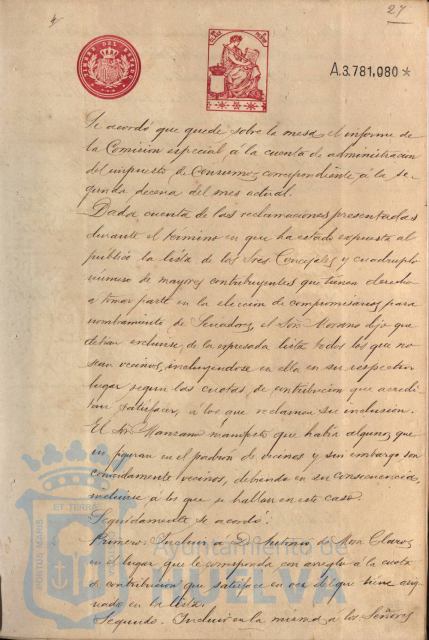 27
TIMBRE DEL ESTADO
A.3.781,080*
Se acordó que quede sobre la mesa el informe de
la Comision especial á la cuenta de administracion
del impuesto de Consumos correspondiente á la se
gunda decena del mes actual.
Dada cuenta de las reclamaciones presentadas
durante el termino en que ha estado expuesta al
publico la lista de los Sres Concejales y cuadruplo
número de mayores contribuyentes que tienen derecho
a tomar parte en la eleccion de compromisarios para
nombramiento de Senadores, el Sor. Morano dijo que
debian excluirse de la expresada lista todos los que no
sean vecinos, incluyendose en ella en su respectivo
lugar segun las cuotas de contribucion que acredi
tan satisfacer, á los que reclaman su inclusion.
El Sor. Manzano manifestó que habia algunos que
no figuran en el padron de vecinos y sin embargo son
conocidamente vecinos, debiendo en su consecuencia
incluirse á los que se hallan en este caso.
Seguidamente se acordó:
Primero. Incluir a D. Antonio de Mora Claros
en el lugar que le corresponda con arreglo á la cuota
de contribucion que satisface en vez del que tiene asig
nado en la lista.
Segundo. Incluir en la misma á los Señores
PORTUS MARIS ET TERRE CUSTODIA
Ayuntamiento de
HUELVA